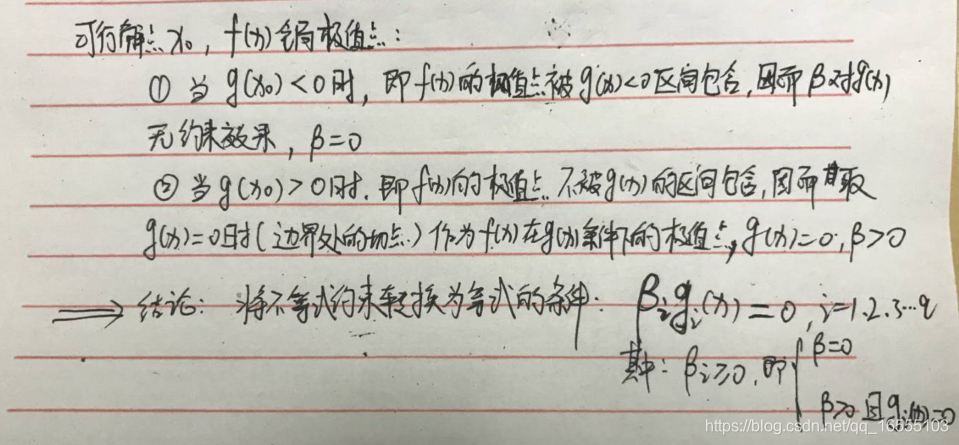 可行解点x₀, f(x)全局极值点:
① 当 g(x₀)<0时, 即f(x)的极值点被g(x)<0区间包含, 因而β对g(x)
无约束效果, β=0
② 当g(x₀)>0时. 即f(x)的极值点 不被g(x)的区间包含, 因而其取
g(x)=0时(边界处的切点)作为f(x)在g(x)条件下的极值点, g(x)=0, β>0
⟹ 结论: 将不等式约束转换为等式的条件: βᵢgᵢ(x)=0, i=1.2.3…q
其中: βᵢ≥0, 即 { β=0
β>0 且gᵢ(x)=0
https://blog.csdn.net/qq_16555103